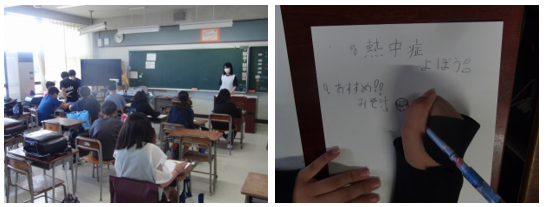 熱中症
よぼう
おすすめ!!
みそ汁